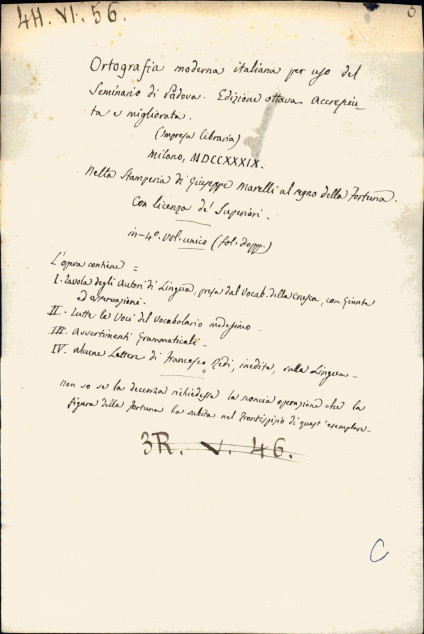 4H. VI. 56.
6
Ortografia moderna italiana per uso del
Seminario di Padova. Edizione ottava. Accresciu-
ta e migliorata.
(Impresa libraria)
Milano, MDCCXXXIX.
Nella Stamperia di Giuseppe Marelli al segno della Fortuna.
Con licenza de' Superiori.
in-4º. Vol. unico (fol. dopp.)
L'opera contiene =
I. Tavola degli Autori di Lingua, presa dal Vocab. della Crusca, con Giunta
ed osservazioni.
II. Tutte le Voci del Vocabolario medesimo.
III. Avvertimenti Grammaticali.
IV. Alcune Lettere di Francesco Redi, inedite, sulla Lingua.
Non so se la decenza richiedesse la sconcia operazione che la
figura della Fortuna ha subita nel Frontispizio di quest'esemplare.
3R. V. 46.
C